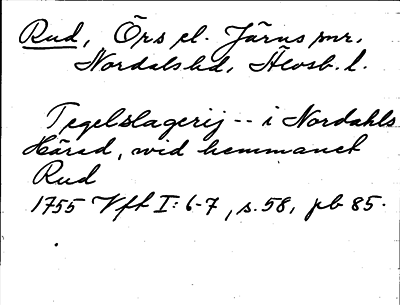 Rud, Örs el. Järns snr,
Nordals hd, Älvsb. l.
Tegelslagerij -- i Nordahls
Härad, wid hemmanet
Rud
1755 Vft I: 6-7, s. 58, pb 85.